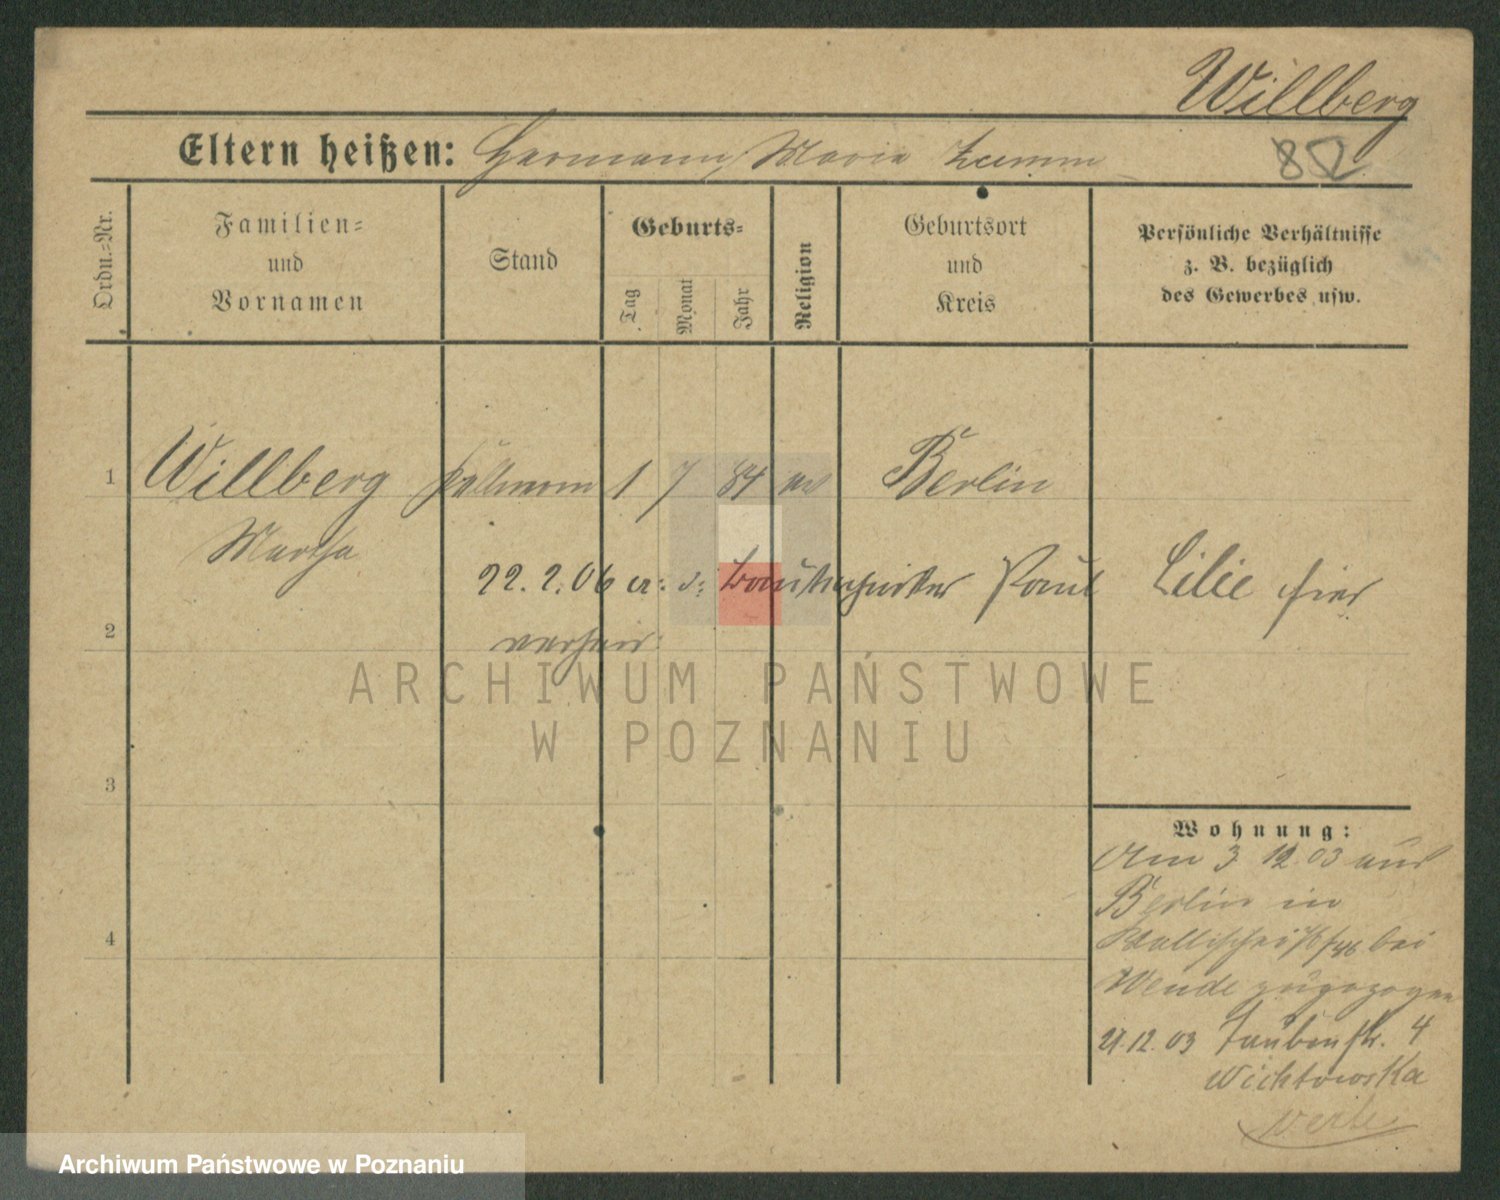 Willberg
Eltern heißen: Hermann, Marie
82
Ordn.=Nr.
Familien=
und
Vornamen
Stand
Geburts=
Tag
Monat
Jahr
Religion
Geburtsort
und
Kreis
Persönliche Verhältnisse
z. B. bezüglich
des Gewerbes usw.
1 Willberg 1 7 84 ev Berlin
Martha
22. 2. 06 Paul Lilie hier
2 verheir.
ARCHIWUM PAŃSTWOWE
W POZNANIU
3
Wohnung:
Am 3 12 03 aus
Berlin in
bei
4
Wende zugezogen
21.12.03 Taubenstr. 4
Wichtowska
Archiwum Państwowe w Poznaniu